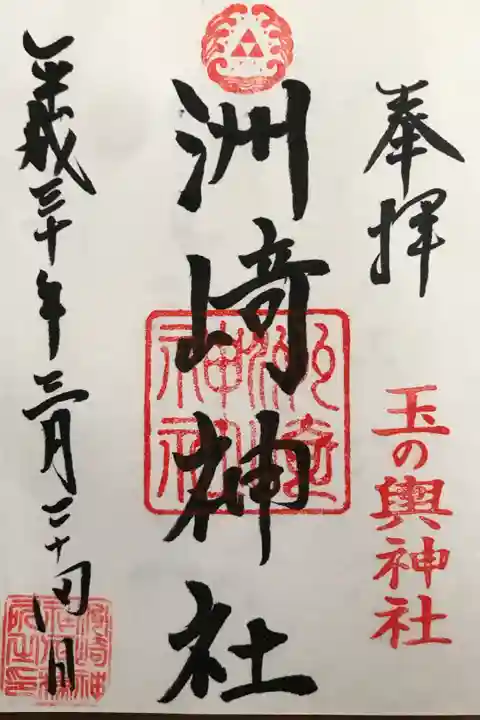 奉拝
玉の輿神社
洲崎神社
平成三十年三月二十四日